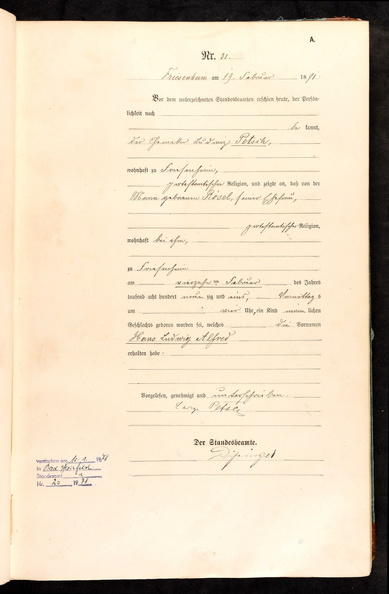 A.
Nr. 31.
Friesenheim am 19 Februar 1891
Vor dem unterzeichneten Standesbeamten erschien heute, der Persön-
lichkeit nach
be kannt,
der Chemiker Ludwig Petsch,
wohnhaft zu Friesenheim,
protestantischer Religion, und zeigte an, daß von der
geborenen Rösel, seiner Ehefrau,
protestantischer Religion,
wohnhaft bei ihm,
zu Friesenheim
am vierzehn Februar des Jahres
tausend acht hundert neun zig und eins, Vormittag s
um vier Uhr, ein Kind männ lichen
Geschlechts geboren worden sei, welches die Vornamen
Hans Ludwig Alfred
erhalten habe
Vorgelesen, genehmigt und unterschrieben
Petsch
Der Standesbeamte.
verstorben am
in Bad
Standesamt
Nr. 20